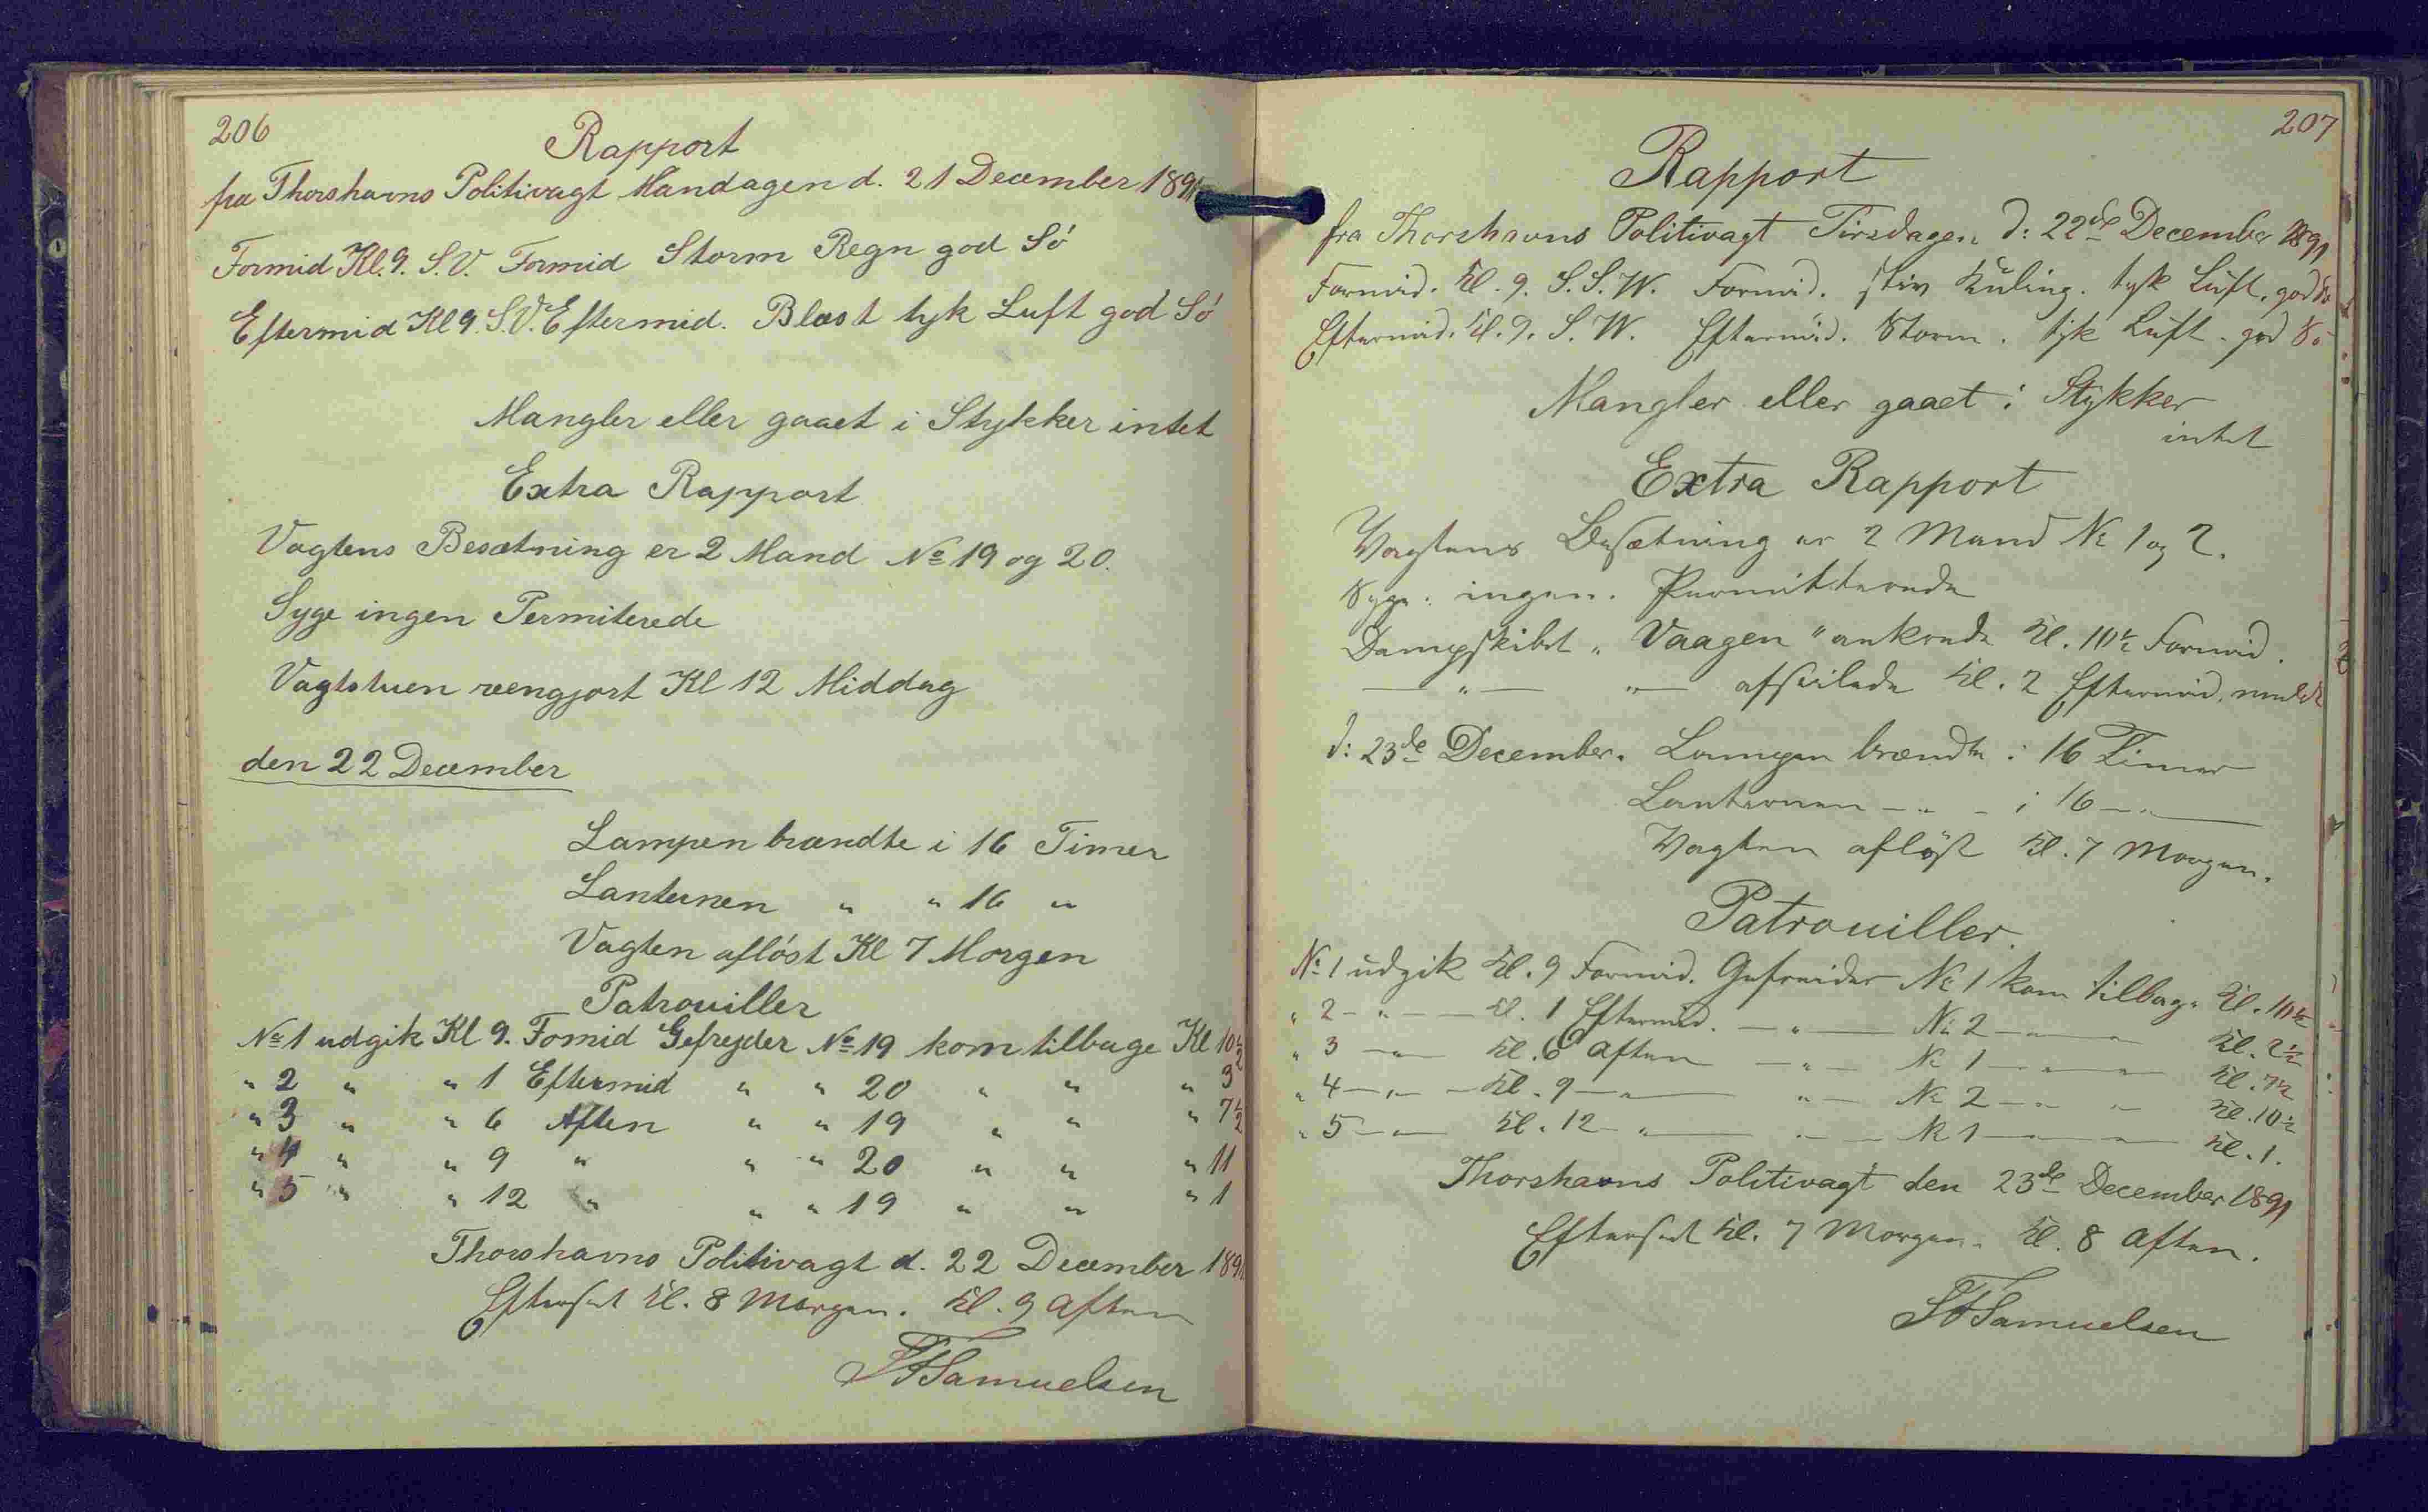 206
Rapport
fra Thorshavns Politivagt Mandagen d. 21 December 1891
Formid Kl. 9. S.V. Formid Storm Regn god Só
Eftermid Kl 9. S.V. Eftermid. Blæst tyk Luft god Só
Mangler eller gaaet i Stykker intet
Extra Rapport
Vagtens Besætning er 2 Mand No 19 og 20.
Syge ingen Permiterede
Vagtstuen reengjort Kl 12 Middag
den 22 December
Lampen brændte i 16 Timer
Lanternen " " 16 "
Vagten aflóst Kl 7 Morgen
Patrouiller
No 1 udgik Kl 9. Fomid Gefrejder No 19 kom tilbage Kl 10½
" 2 " " 1 Eftermid " " 20 " " " 3
" 3 " " 6 Aften " " 19 " " " 7½
" 4 " " 9 " " " 20 " " " 11
" 5 " " 12 " " " 19 " " " 1
Thorshavns Politivagt d. 22 December 1891
Efterset Kl. 8 Morgen. Kl. 9 Aften
Samuelsen
207
Rapport
fra Thorshavns Politivagt Tirsdagen d: 22de December 1891
Formid. Kl. 9. S.S.W. Formid. stiv Kuling. tyk Luft. god Sö
Eftermid. Kl. 9. S.W. Eftermid. Storm. tyk Luft. god Sö
Mangler eller gaaet i Stykker
intet
Extra Rapport
Vagtens Besætning er 2 Mand No 1 og 2.
Syge: ingen. Permitterede
Dampskibet „Vaagen" ankrede Kl. 10½ Formid.
— " — " — afseilede Kl. 2 Eftermid. meldt
d: 23de December. Lampen brændte i 16 Timer
Lanternen — " — i 16 — " —
Vagten aflöst Kl. 7 Morgen.
Patrouiller.
No 1 udgik Kl. 9 Formid. Gefreider No 1 kom tilbage Kl. 10½
" 2 — " — Kl. 1 Eftermid. — " — No 2 — " — " Kl. 2½
" 3 — " — Kl. 6 Aften — " — No 1 — " — " — Kl. 7½
" 4 — " — Kl. 9 — " — " — No 2 — " — " — Kl. 10½
" 5 — " — Kl. 12 — " — " — No 1 — " — " — Kl. 1.
Thorshavns Politivagt den 23de December 1891
Efterset Kl. 7 Morgen. Kl. 8 Aften.
Samuelsen